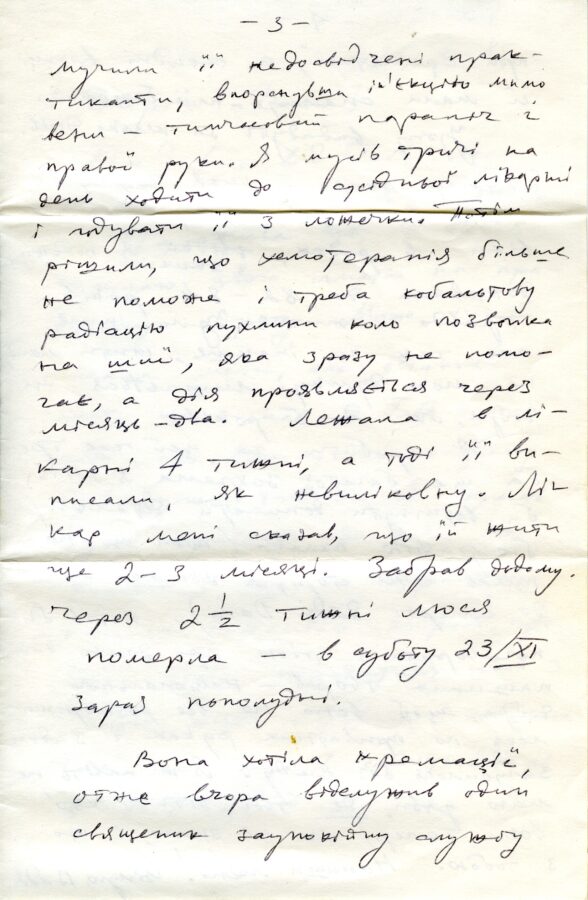 – 3 –
мучили її недосвідчені прак-
тиканти, впорснувши ін'єкцію мимо
вени – тимчасовий параліч
правої руки. Я мусів тричі на
день ходити до сусідньої лікарні
і годувати її з ложечки. Потім
рішили, що хемотерапія більше
не поможе і треба кобальтову
радіацію пухлини коло позвонка
на шиї, яка зразу не помо-
гає, а дія проявляється через
місяць-два. Лежала в лі-
карні 4 тижні, а тоді її ви-
писали, як невиліковну. Лі-
кар мені сказав, що їй жити
ще 2–3 місяці. Забрав додому.
Через 2 1/2 тижні Люся
померла – в суботу 23/XI
зараз пополудні.
Вона хотіла кремації,
отже вчора відслужив один
священик заупокійну службу